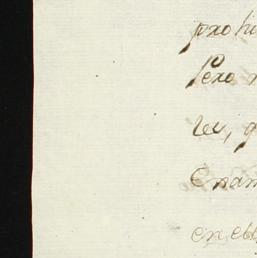 prohi
Pero
ve, q
Enam
en ell